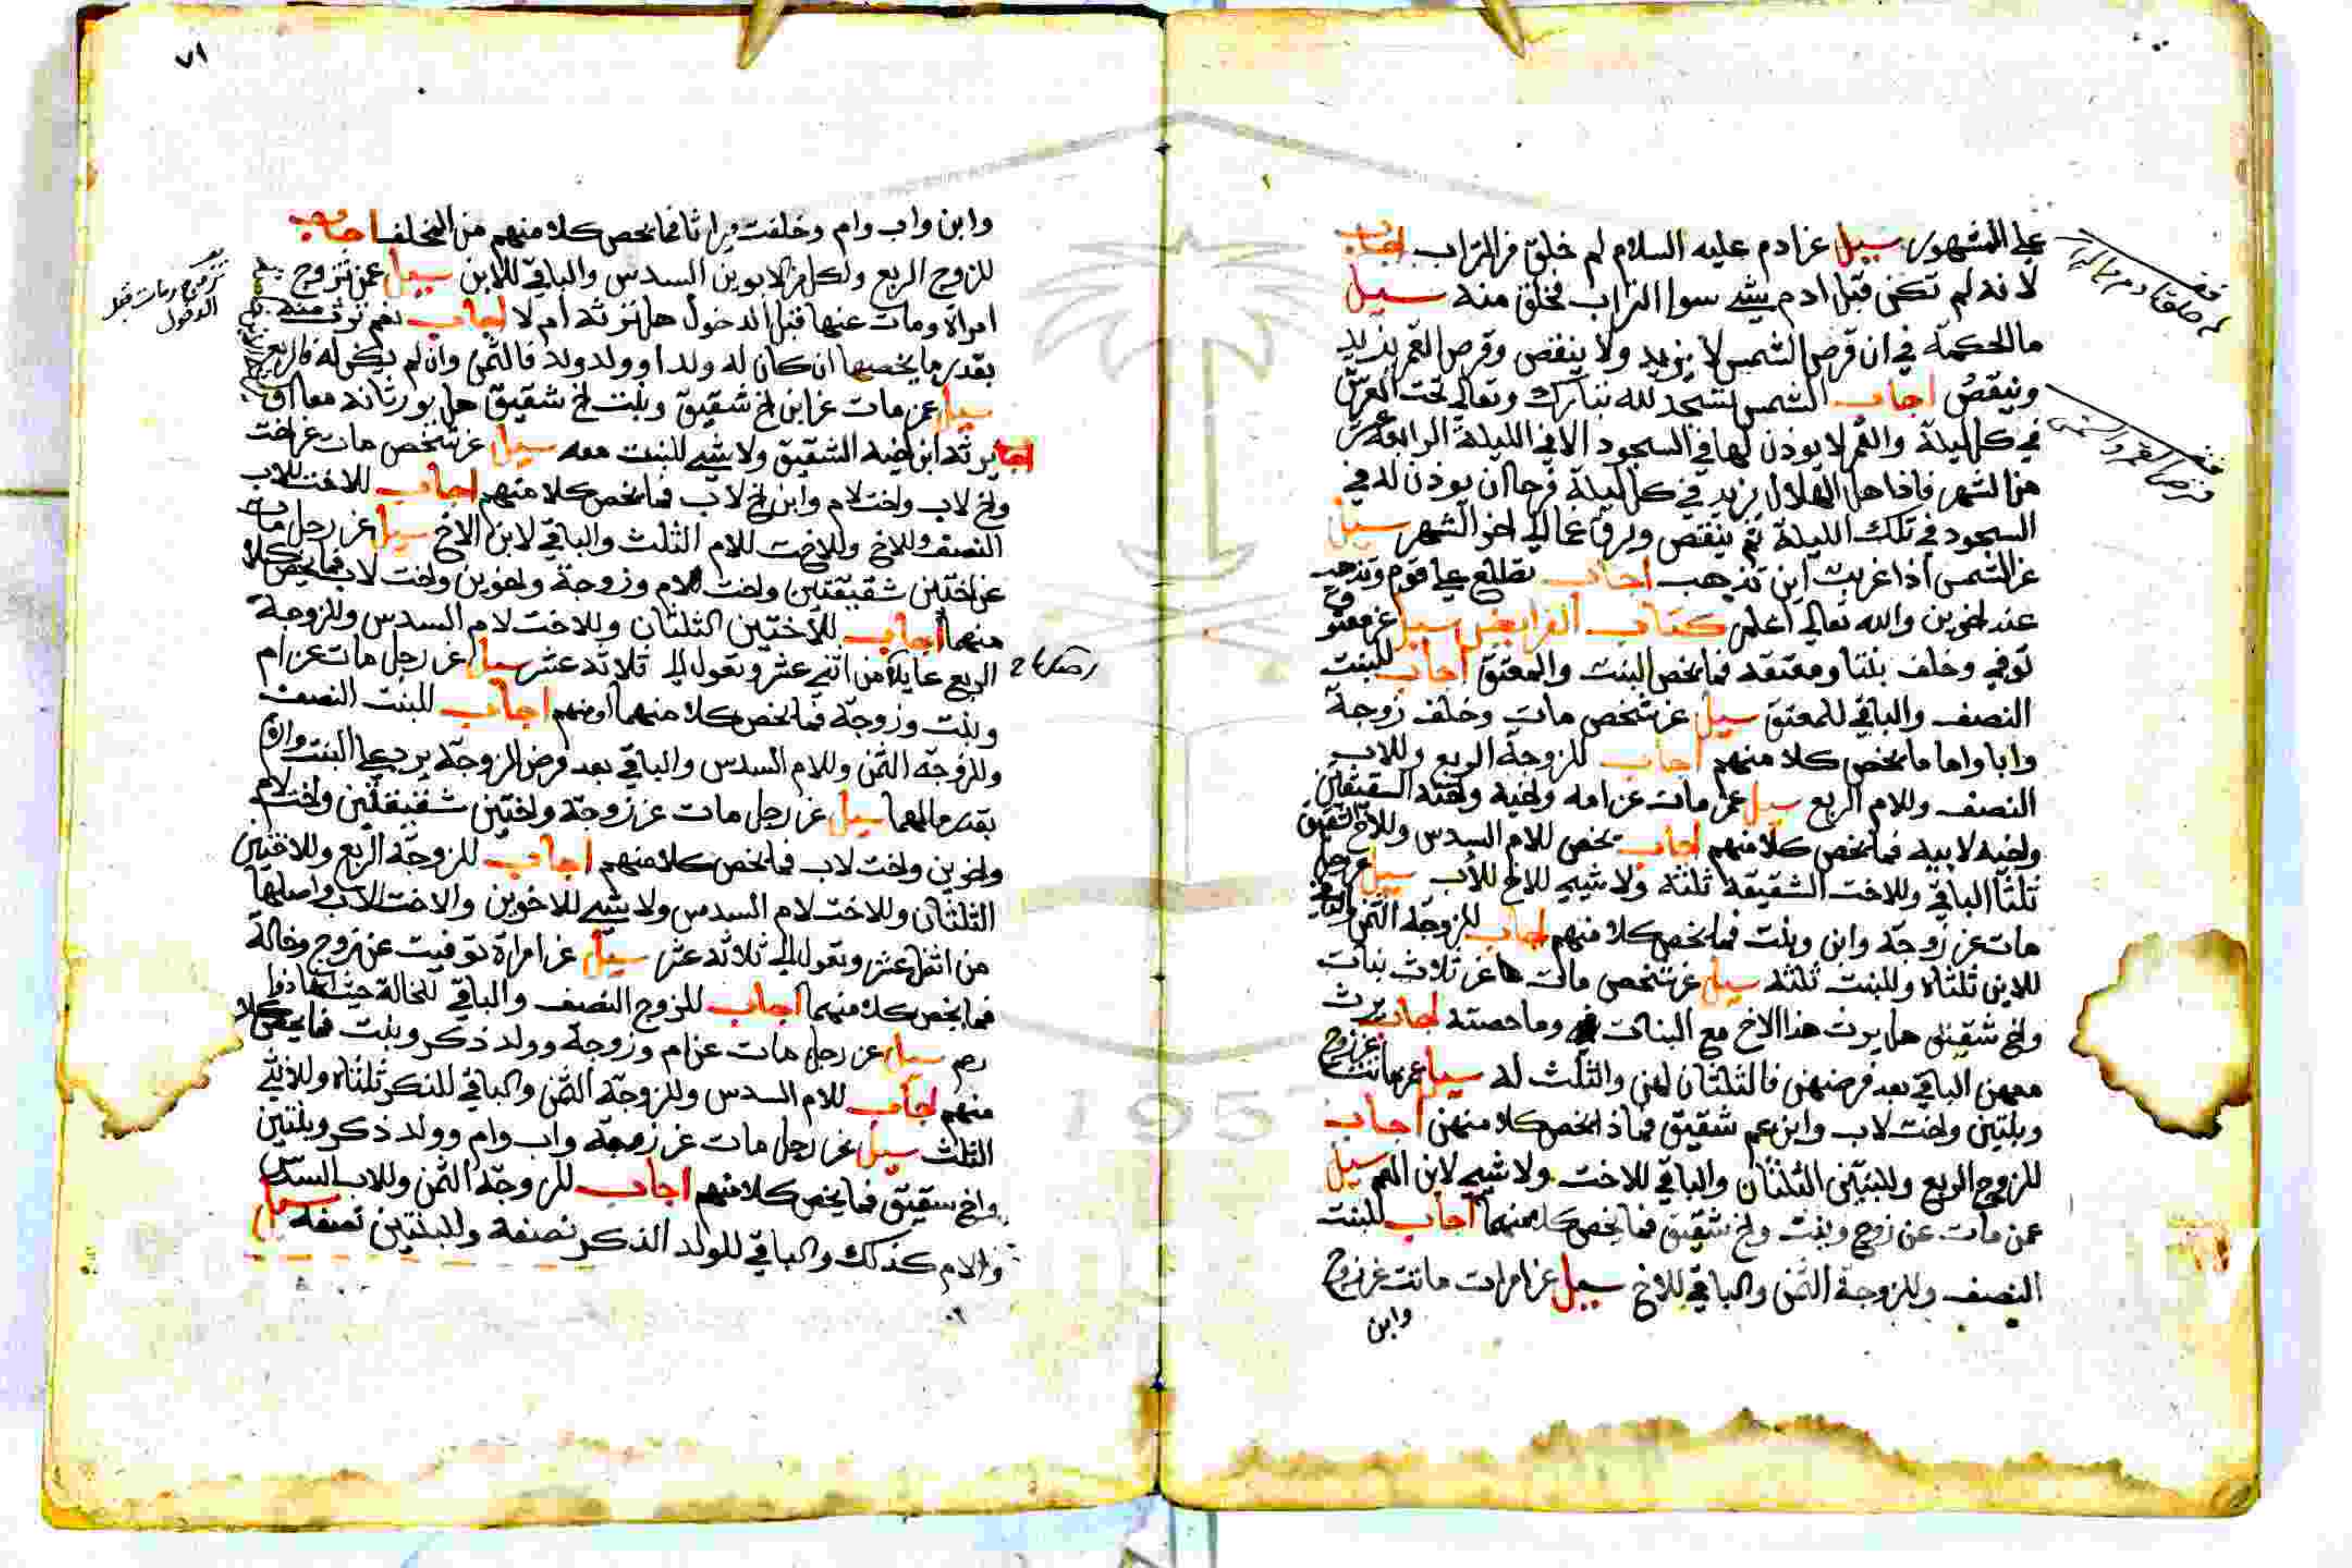 على المشهور سيل عن ادم عليه السلام لم خلق من التراب اجاب
لانه لم تكن قبل ادم شيء سوا التراب فخلق منه سيل
ما الحكمة في ان قرص الشمس لا يزيد ولا ينقص وقرص القمر يزيد
وينقص اجاب الشمس تسجد لله تبارك وتعالى تحت العرش
في كل ليلة والقمر لا يوذن لها في السجود الا في الليلة الرابعة عشر
من الشهر فاذا هل الهلال يزيد في كل ليلة فرحا ان يوذن له في
السجود في تلك الليلة ثم ينقص ويرق عما الى اخر الشهر سيل
عن الشمس اذا غربت اين تذهب اجاب تطلع على قوم وتذهب
عند اخرين والله تعالى اعلم كتاب الفرايض سيل عن معتوق
توفي وخلف بنتا ومعتقه فما يخص البنت والمعتق اجاب للبنت
النصف والباقي للمعتق سيل عن شخص مات وخلف زوجة
وابا واما ما يخص كلا منهم اجاب للزوجة الربع وللاب
النصف وللام الربع سيل عمن مات عن امه واخيه واخته الشقيقين
واخيه لابيه فما يخص كلا منهم اجاب يخص للام السدس وللاخ الشقيق
ثلثا الباقي وللاخت الشقيقة ثلثه ولا شيء للاخ للاب سيل عن رجل
مات عن زوجة وابن وبنت فما يخص كلا منهم اجاب للزوجة الثمن والباقي
للابن ثلثاه وللبنت ثلثه سيل عن شخص مات عن ثلاث بنات
واخ شقيق هل يرث هذا الاخ مع البنات وما حصته اجاب يرث
معهن الباقي بعد فرضهن فالثلثان لهن والثلث له سيل عمن ماتت عن زوج
وبنتين واخت لاب وابن عم شقيق فماذا يخص كلا منهن اجاب
للزوج الربع وللبنتين الثلثان والباقي للاخت ولا شيء لابن العم سيل
عمن مات عن زوج وبنت واخ شقيق فما يخص كلا منهما اجاب للبنت
النصف وللزوجة الثمن والباقي للاخ سيل عن امرات ماتت عن زوج
وابن
٧١
وابن واب وام وخلفت ميراثا فما يخص كلا منهم من المخلف اجاب
للزوج الربع ولكل من الابوين السدس والباقي للابن سيل عمن تزوج
امراة ومات عنها قبل الدخول هل ترثه ام لا اجاب نعم ترث منه
بقدر ما يخصها ان كان له ولد او ولد ولد فالثمن وان لم يكن له فالربع
سيل عمن مات عن ابن اخ شقيق وبنت اخ شقيق هل يورثانه معا او
اجاب يرثه ابن اخيه الشقيق ولا شيء للبنت معه سيل عن شخص مات عن اخت
واخ لاب واخت لام وابن اخ لاب فما يخص كلا منهم اجاب للاخت للاب
النصف وللاخ وللاخت للام الثلث والباقي لابن الاخ سيل عن رجل مات
عن اختين شقيقتين واخت لام وزوجة واخوين واخت لاب فما يخص كلا
منهما اجاب للاختين الثلثان وللاخت لام السدس وللزوجة
الربع عايلة من اثني عشر وتعول الى ثلاثة عشر سيل عن رجل مات عن ام
وبنت وزوجة فما يخص كلا منهما او منهم اجاب للبنت النصف
وللزوجة الثمن وللام السدس والباقي بعد فرض الزوجة يرد على البنت والام
بقدر مالهما سيل عن رجل مات عن زوجة واختين شقيقتين واخت لام
واخوين واخت لاب فما يخص كلا منهم اجاب للزوجة الربع وللاختين
الثلثان وللاخت لام السدس ولا شيء للاخوين والاخت للاب واصلها
من اثنى عشر وتعول الى ثلاثة عشر سيل عن امراة توفيت عن زوج وخالة
فما يخص كلا منهما اجاب للزوج النصف والباقي للخالة حيث انها ذوا
رحم سيل عن رجل مات عن ام وزوجة وولد ذكر وبنت فما يخص كلا
منهم اجاب للام السدس وللزوجة الثمن والباقي للذكر ثلثاه وللانثى
الثلث سيل عن رجل مات عن زوجة واب وام وولد ذكر وبنتين
واخ شقيق فما يخص كلا منهم اجاب للزوجة الثمن وللاب السدس
والام كذلك والباقي للولد الذكر نصفه وللبنتين نصفه سيل
تزوج ومات قبل
الدخول